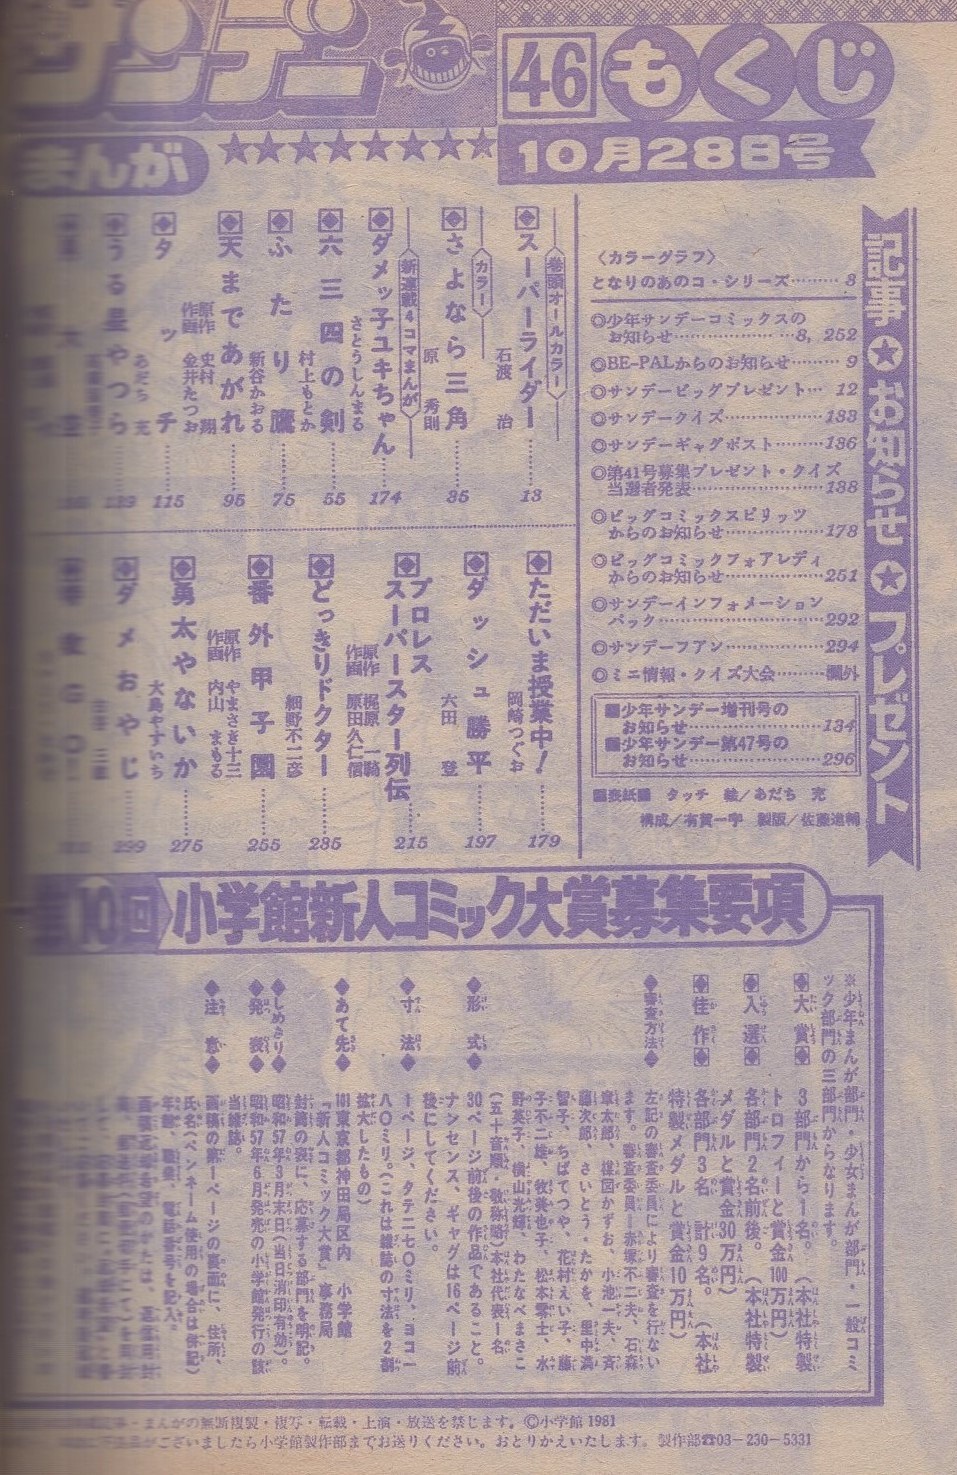 サンデー
46 もくじ
10月28日号
まんが
巻頭オールカラー
スーパーライダー 石渡 治 13
カラー
さよなら三角 原 秀則 35
新連載4コマまんが
ダメッ子ユキちゃん さとうしんまる 174
六三四の剣 村上もとか 55
ふたり鷹 新谷かおる 75
天まであがれ 原作 史村 翔 作画 金井たつお 95
タッチ あだち 充 115
うる星やつら
ただいま授業中! 岡崎つぐお 179
ダッシュ勝平 六田 登 197
プロレススーパースター列伝 原作 梶原一騎 作画 原田久仁信 215
どっきりドクター 細野不二彦 235
番外甲子園 原作 やまさき十三 作画 内山まもる 255
勇太やないか 大島やすいち 275
ダメおやじ 299
記事★お知らせ★プレゼント
〈カラーグラフ〉
となりのあのコ・シリーズ……3
◎少年サンデーコミックスの
お知らせ……8, 252
◎BE-PALからのお知らせ……9
◎サンデービッグプレゼント…12
◎サンデークイズ……133
◎サンデーギャグポスト……136
◎第41号募集プレゼント・クイズ
当選者発表……138
◎ビッグコミックスピリッツ
からのお知らせ……178
◎ビッグコミックフォアレディ
からのお知らせ……251
◎サンデーインフォメーション
パック……292
◎サンデーフアン……294
◎ミニ情報・クイズ大会……欄外
■少年サンデー増刊号の
お知らせ……134
■少年サンデー第47号の
お知らせ……296
■表紙■ タッチ 絵/あだち 充
構成/有賀一宇 製版/佐藤進輔
第10回 小学館新人コミック大賞募集要項
※少年まんが部門・少女まんが部門・一般コミ
ック部門の三部門からなります。
◆大賞◆ 3部門から1名。(本社特製
トロフィーと賞金100万円)
◆入選◆ 各部門2名前後。(本社特製
メダルと賞金30万円)
◆佳作◆ 各部門3名 計9名。(本社
特製メダルと賞金10万円)
◆審査方法◆ 左記の審査委員により審査を行ない
ます。審査委員=赤塚不二夫、石森
章太郎、楳図かずお、小池一夫、斉
藤次郎、さいとう・たかを、里中満
智子、ちばてつや、花村えい子、藤
子不二雄、牧美也子、松本零士、水
野英子、横山光輝、わたなべまさこ
(五十音順・敬称略)本社代表1名
◆形式◆ 30ページ前後の作品であること。
ナンセンス、ギャグは16ページ前
後にしてください。
◆寸法◆ 1ページ、タテ二七〇ミリ、ヨコ一
八〇ミリ。(これは雑誌の寸法を2割
拡大したもの)
◆あて先◆ 101東京都神田局区内 小学館
「新人コミック大賞」事務局
封筒の表に、応募する部門を明記。
◆しめきり◆ 昭和57年3月末日(当日消印有効)。
◆発表◆ 昭和57年6月発売の小学館発行の該
当雑誌。
◆注意◆ 画稿の第1ページの裏面に、住所、
氏名(ペンネーム使用の場合は併記)
年齢、職業、電話番号を記入。
・まんがの無断複製・複写・転載・上演・放送を禁じます。©小学館 1981
がございましたら小学館製作部までお送りください。おとりかえいたします。 製作部☎03-230-5331